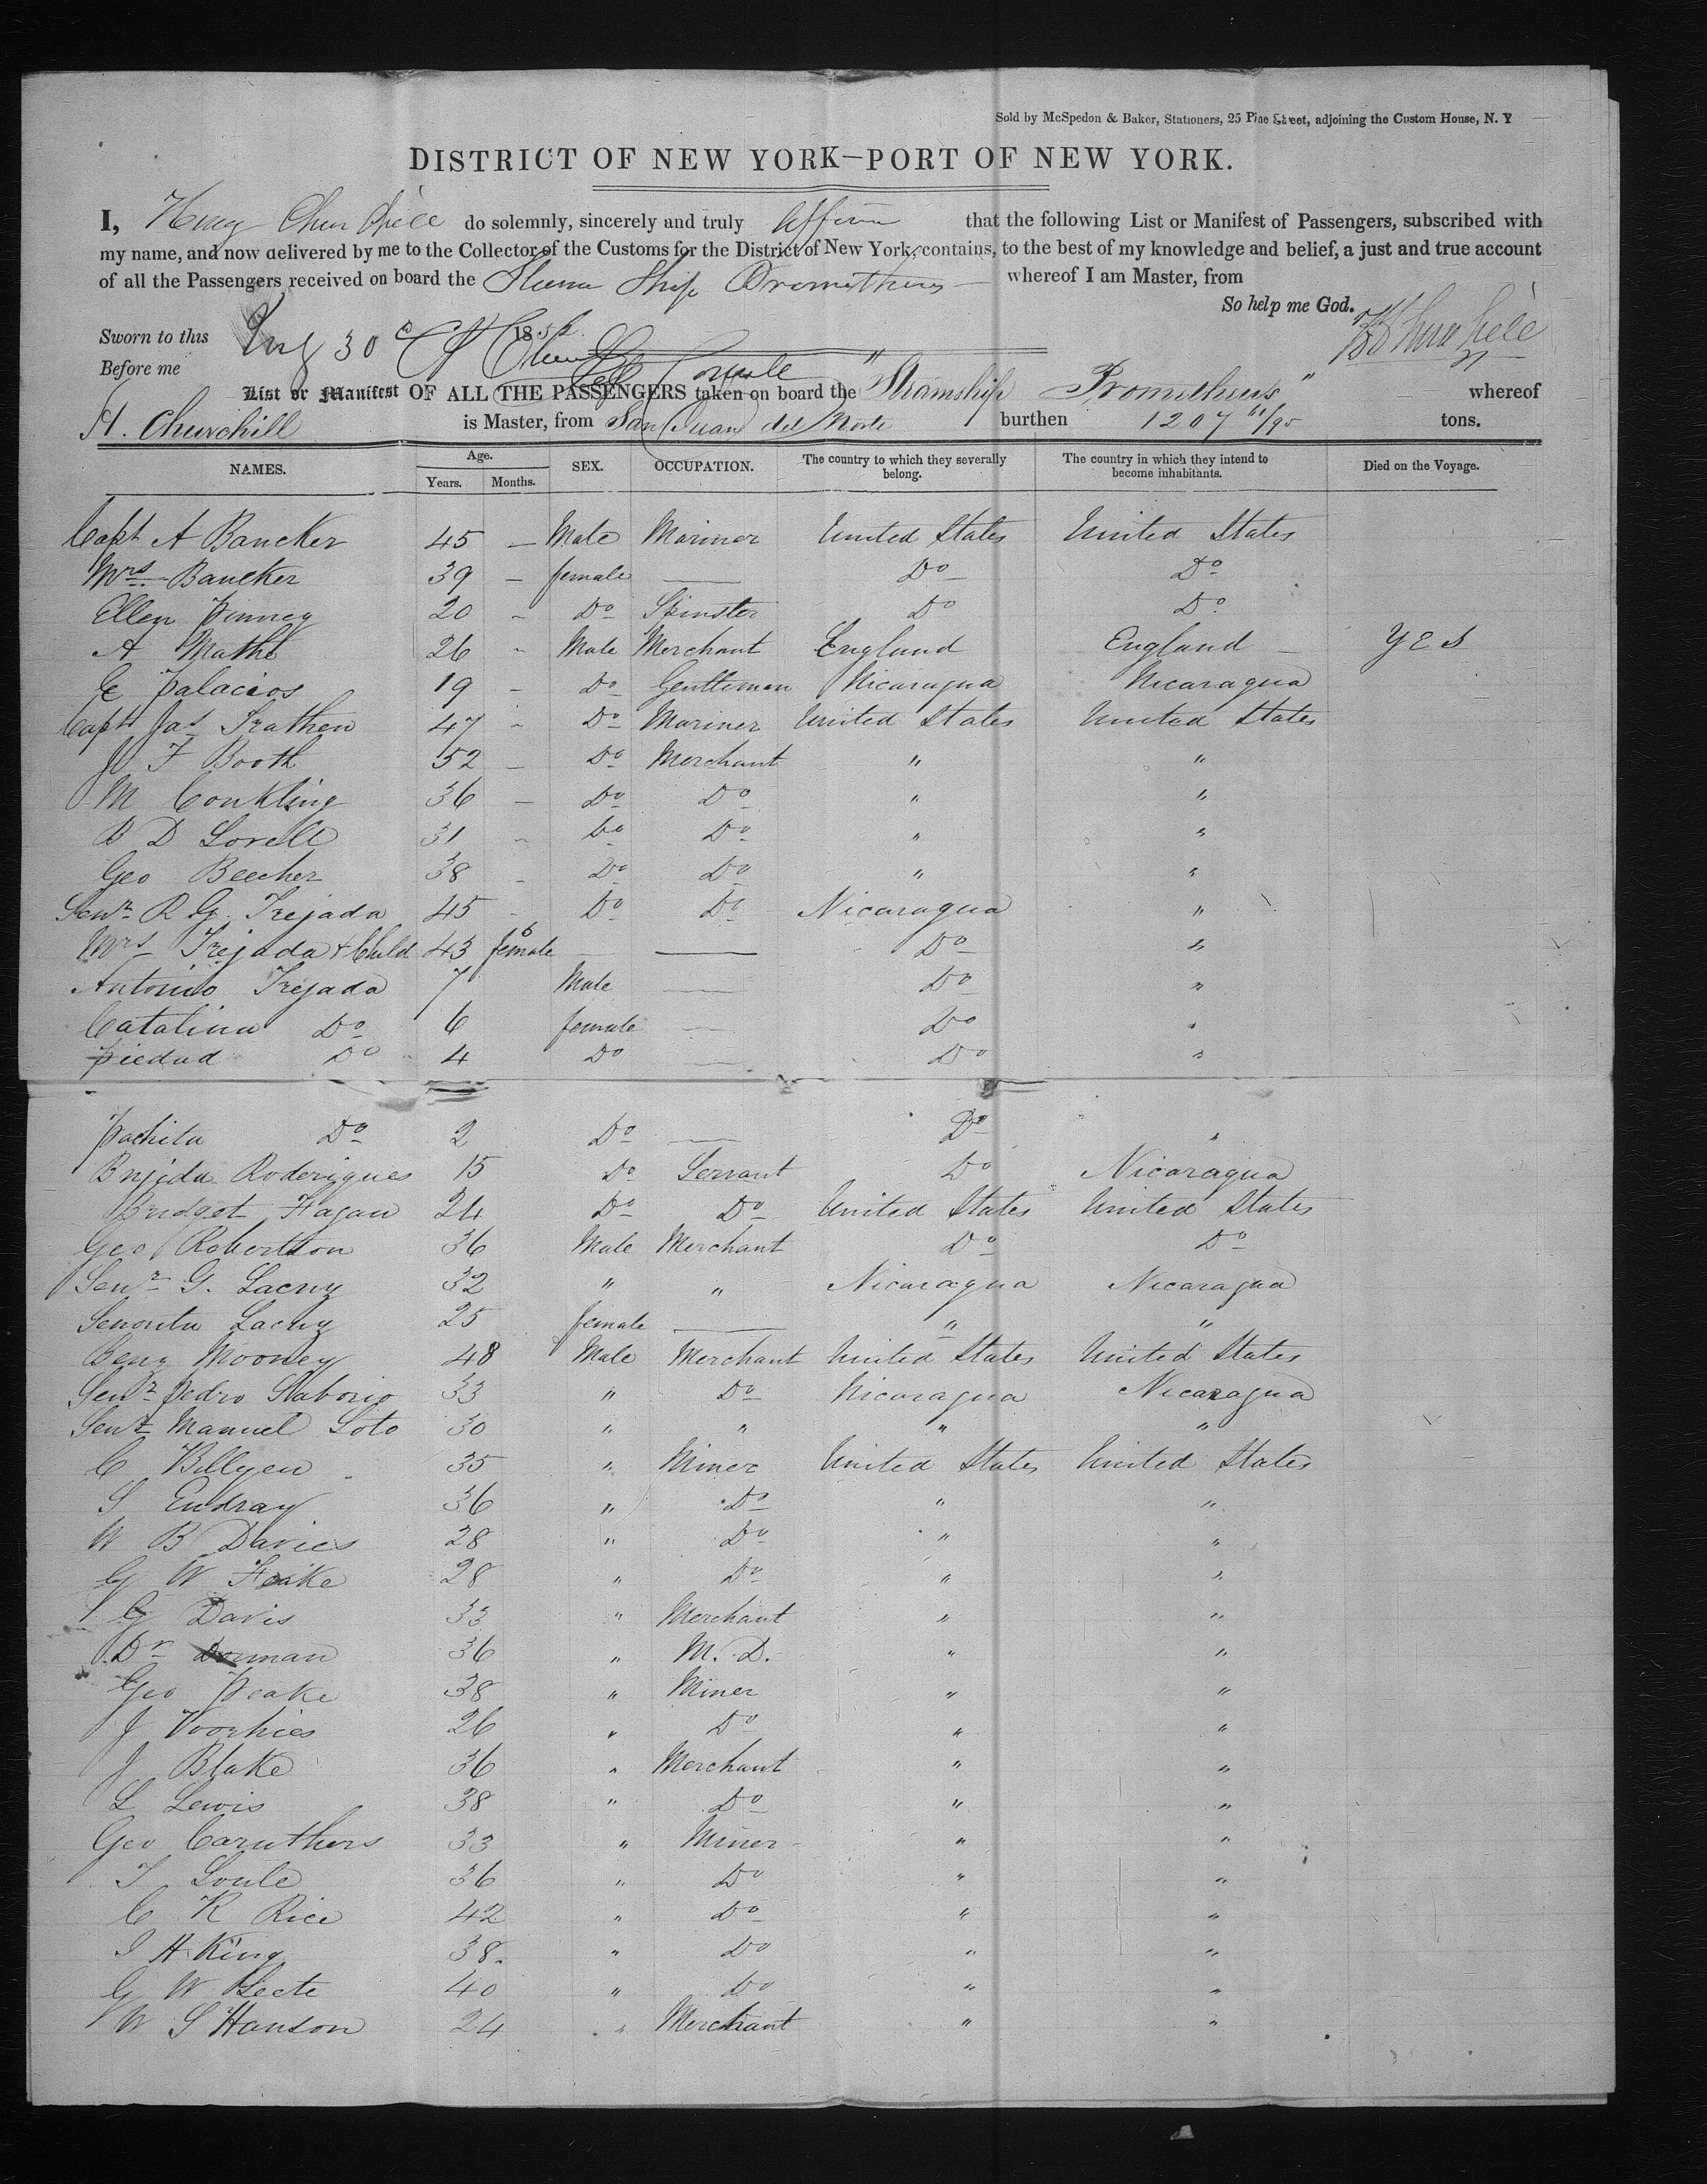 Sold by McSpedon & Baker, Stationers, 25 Pine Street, adjoining the Custom House, N. Y
DISTRICT OF NEW YORK—PORT OF NEW YORK.
I, Henry Churchill do solemnly, sincerely and truly affirm that the following List or Manifest of Passengers, subscribed with
my name, and now delivered by me to the Collector of the Customs for the District of New York, contains, to the best of my knowledge and belief, a just and true account
of all the Passengers received on board the Steam Ship Prometheus whereof I am Master, from
So help me God.
Sworn to this 30 185 H Churchill
Before me
List or Manifest OF ALL THE PASSENGERS taken on board the "Steamship Prometheus" whereof
H. Churchill is Master, from San Juan del Norte burthen 1207 61/95 tons.
NAMES. Age. Years. Months. SEX. OCCUPATION. The country to which they severally belong. The country in which they intend to become inhabitants. Died on the Voyage.
Capt A Bancker 45 — Male Mariner United States United States
Mrs Bancker 39 — female — Do Do
Ellen Pinney 20 " Do Spinster Do Do
A Mathe 26 " Male Merchant England England — YES
E Palacios 19 — Do Gentleman Nicaragua Nicaragua
Capt Jas Trathen 47 " Do Mariner United States United States
F Booth 52 — Do Merchant " "
M Conkling 36 — Do Do " "
B D Lovell 31 " Do Do " "
Geo Beecher 38 — Do Do " "
Senr R G. Trejada 45 - Do Do Nicaragua "
Mrs Trejada & Child 43 6 female — Do "
Antonio Trejada 7 Male — Do "
Catalina Do 6 female — Do "
Piedad Do 4 Do — Do "
Pachita Do 2 Do — Do "
Roderigues 15 Do Servant Do Nicaragua
Bridget Fagan 24 Do Do United States United States
Geo Robertson 36 Male Merchant Do Do
Senr G. Lacny 32 " " Nicaragua Nicaragua
Senorita Lacny 25 female — " "
Benj Mooney 48 Male Merchant United States United States
Senr Pedro Saborio 33 " Do Nicaragua Nicaragua
Senr Manuel Soto 30 " " " "
C Billyeu 35 " Miner United States United States
S Endray 36 " Do " "
W B Davies 28 " Do " "
G W Feake 28 " Do " "
G Davis 33 " Merchant " "
Dr Dorman 36 " M. D. " "
Geo Peake 38 " Miner " "
J Voorhies 26 " Do " "
J Blake 36 " Merchant " "
L Lewis 38 " Do " "
Geo Caruthers 33 " Miner " "
T Soule 36 " Do " "
C R Rice 42 " Do " "
I H King 38. " Do " "
G W Leete 40 " Do " "
W S Hanson 24 " Merchant " "